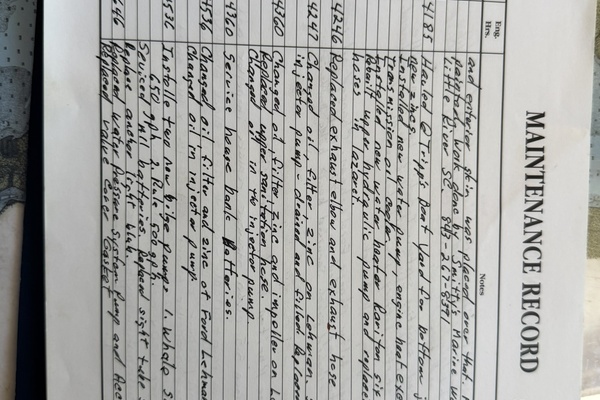 MAINTENANCE RECORD
Eng. Hrs.
Notes
and exterior skin was placed over that.
work done by Smitty's Marine
Little River SC. 843-267-8541
4185 Hauled @ Tripp's Boat Yard for bottom
new zincs.
Installed new water pump, engine heat
transmission oil cooler
Installed new water heater Raritan six
upper hydraulic pump and replace
hoses in lazaret.
4246 Replaced exhaust elbow and exhaust hose
4247 Changed oil, filter, zinc on Lehman
injector pump - drained and filled. Replaced
4360 Changed oil, filter, zinc and impeller on
Replaced upper hose.
Changed oil in injector pump.
4360 Service house bank Batteries.
4536 Changed oil, filter and zinc of Ford Lehman
Changed oil in injector pump
Installe two new bilge pumps 1. Whale
2 Rule 1500 gph
Serviced all batteries. Replaced sight tube
Replace another light bulb.
Replaced water pressure system Pump and
Replaced valve cover gasket